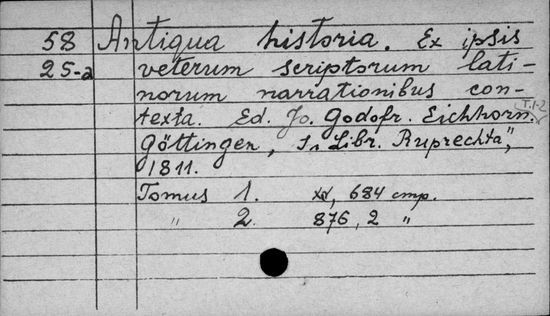 58 Antiqua historia. Ex ipsis
25-a veterum scriptorum lati-
norum narrationibus con-
T.1-2
texta. Ed. Jo. Godofr. Eichhorn.
Göttingen, "Libr. Ruprechta",
1811.
Tomus 1. XV, 684 стр.
" 2. 876, 2 "